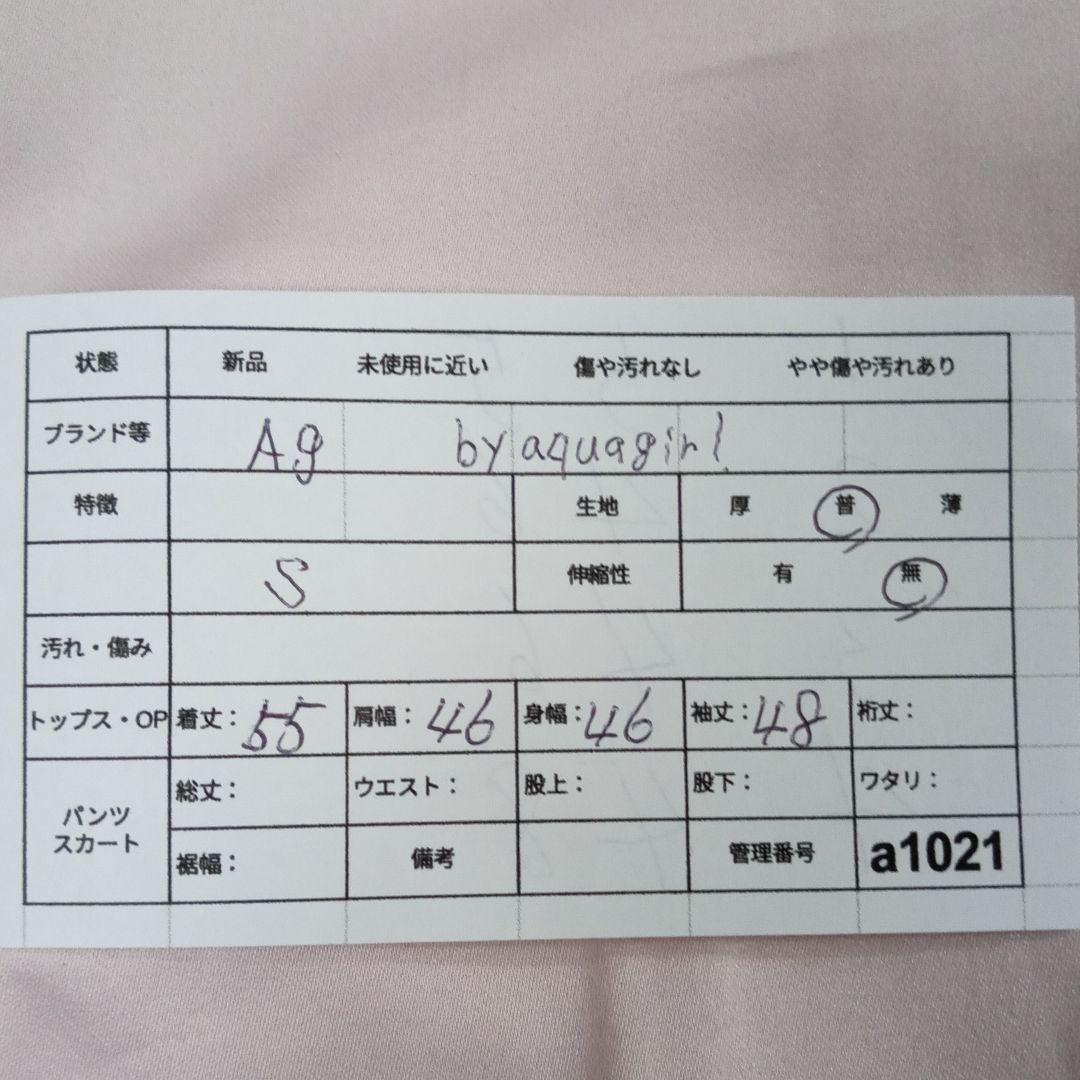 状態 新品 未使用に近い 傷や汚れなし やや傷や汚れあり
ブランド等 Ag by aquagirl
特徴 生地 厚 普 薄
S 伸縮性 有 無
汚れ・傷み
トップス・OP 着丈: 55 肩幅: 46 身幅: 46 袖丈: 48 裄丈:
パンツ スカート 総丈: ウエスト: 股上: 股下: ワタリ:
裾幅: 備考 管理番号 a1021